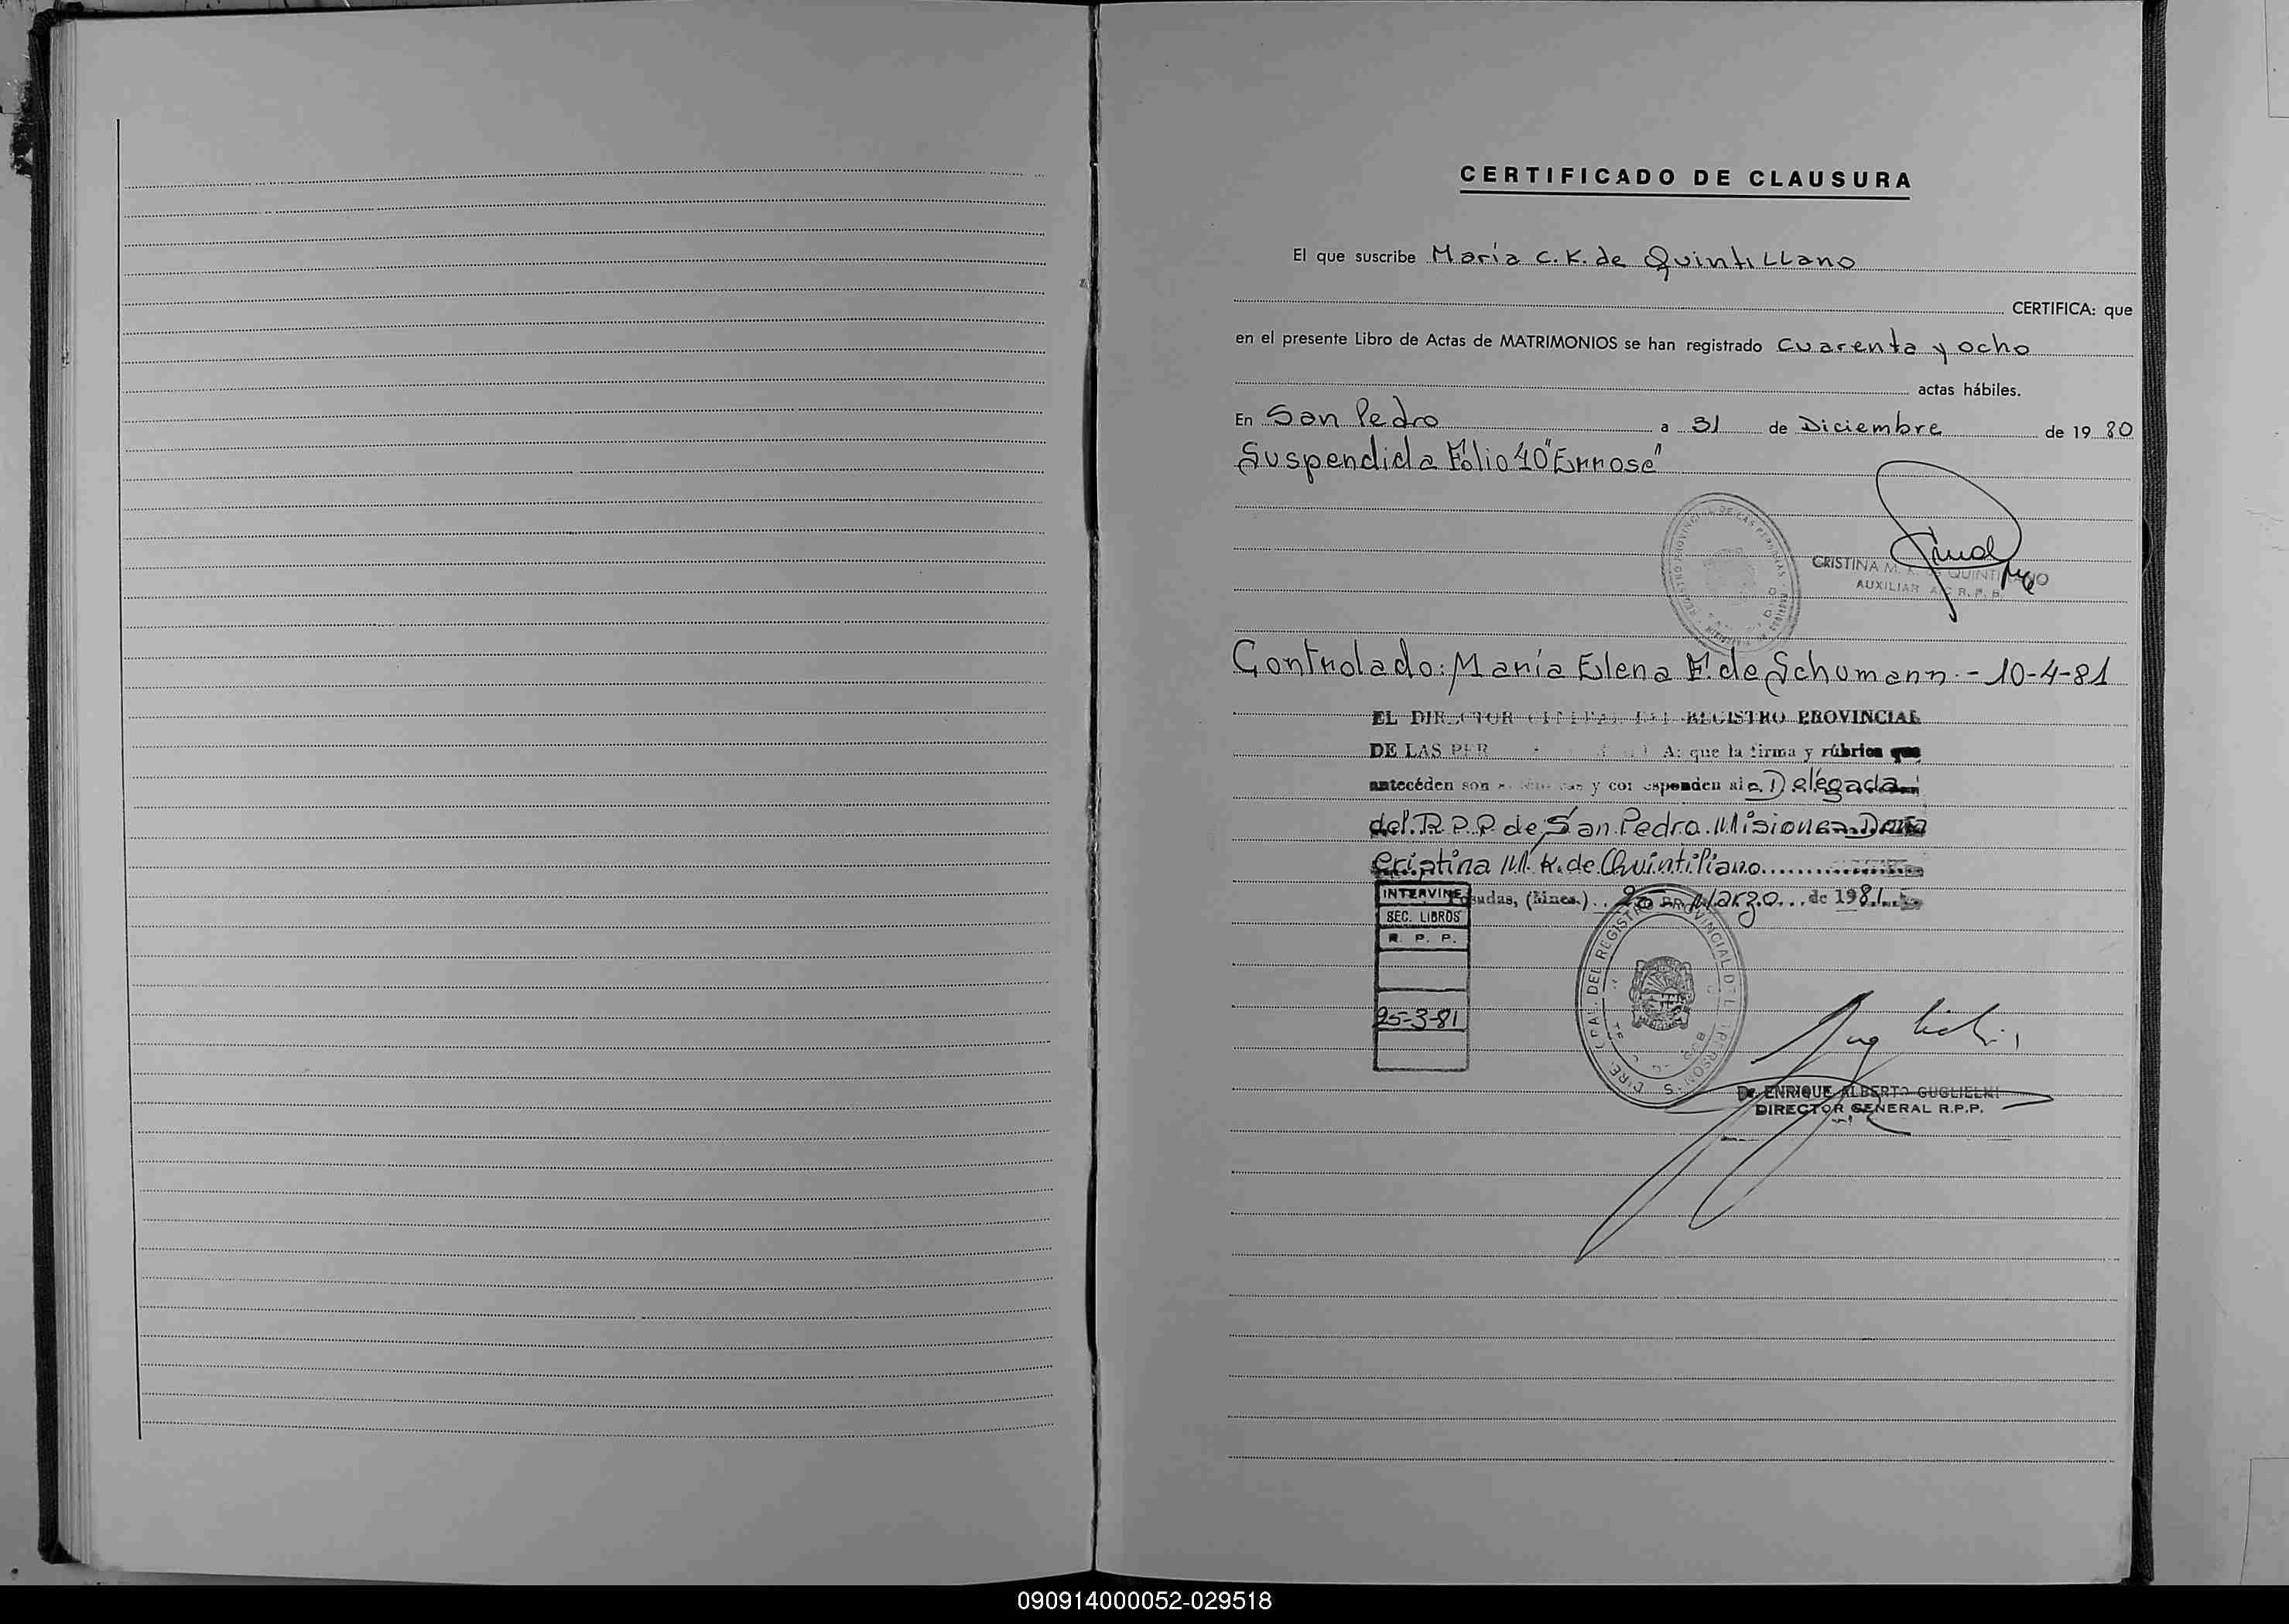 CERTIFICADO DE CLAUSURA
El que suscribe María C. K. de Quintillano
CERTIFICA: que
en el presente Libro de Actas de MATRIMONIOS se han registrado cuarenta y ocho
actas hábiles.
En San Pedro a 31 de Diciembre de 1980
Suspendida Fólio 40 "Errose"
CRISTINA M. K. de QUINTILIANO
AUXILIAR A/C R. P. P.
Controlado: María Elena F. de Schumann. - 10-4-81
EL DIRECTOR GENERAL DEL REGISTRO PROVINCIAL
DE LAS PER A: que la firma y rúbrica que
antecéden son y corresponden al a Delegada
del R.P.P. de San Pedro Misiones Doña
Cristina M. K. de Quintiliano
Posadas, (Mnes.) 25 Marzo de 1981
INTERVINE
SEC. LIBROS
R. P. P.
25-3-81
Dr. ENRIQUE ALBERTO GUGLIELMI
DIRECTOR GENERAL R.P.P.
090914000052-029518